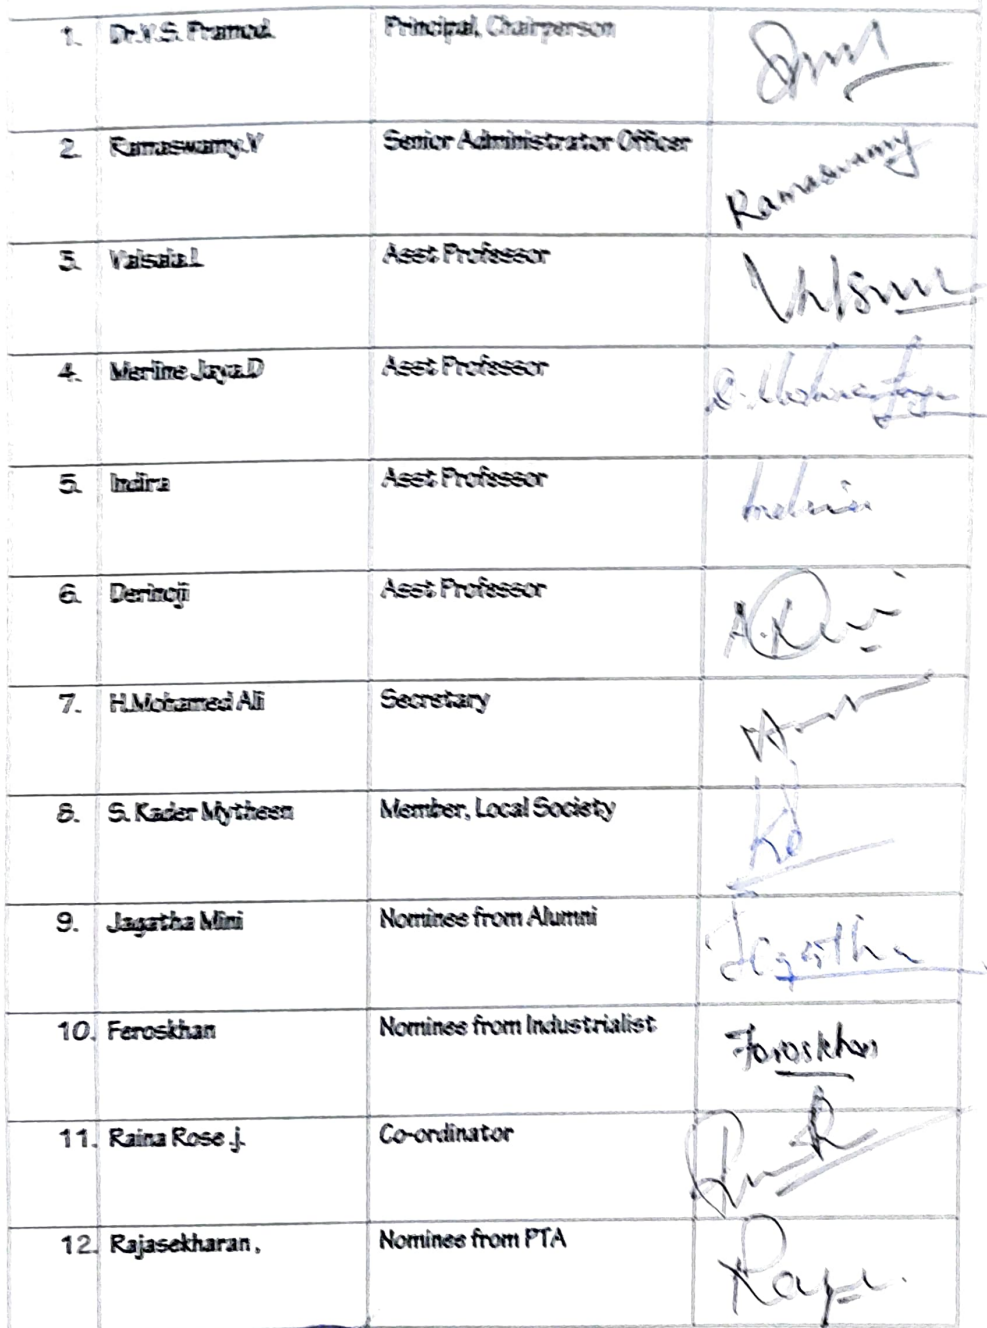 1. Dr.V.S. Pramod. Principal, Chairperson
2. Ramaswamy.V Senior Administrator Officer Ramaswamy
3. Valsala.L Asst Professor
4. Merline Jaya.D Asst Professor
5. Indira Asst Professor Indira
6. Derinoji Asst Professor
7. H.Mohamed Ali Secretary
8. S. Kader Mytheen Member, Local Society
9. Jagatha Mini Nominee from Alumni Jagatha
10. Feroskhan Nominee from Industrialist Feroskhan
11. Raina Rose .j. Co-ordinator
12. Rajasekharan, Nominee from PTA